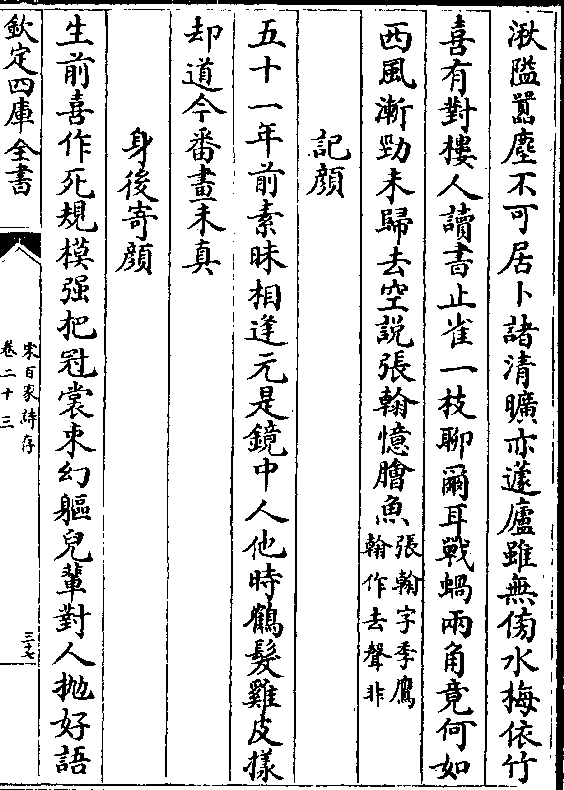 湫隘囂塵不可居卜諸清曠亦蘧廬雖無傍水梅依竹
喜有對樓人讀書止雀一枝聊爾耳戰蝸兩角竟何如
西風漸勁未歸去空説張翰憶膾魚張翰字季鷹
翰作去聲非
記顔
五十一年前素昧相逢元是鏡中人他時鶴髮雞皮樣
却道今番畫未真
身後寄顔
生前喜作死規模强把冠裳束幻軀兒輩對人抛好語
欽定四庫全書
宋百家詩存
卷二十三
三七